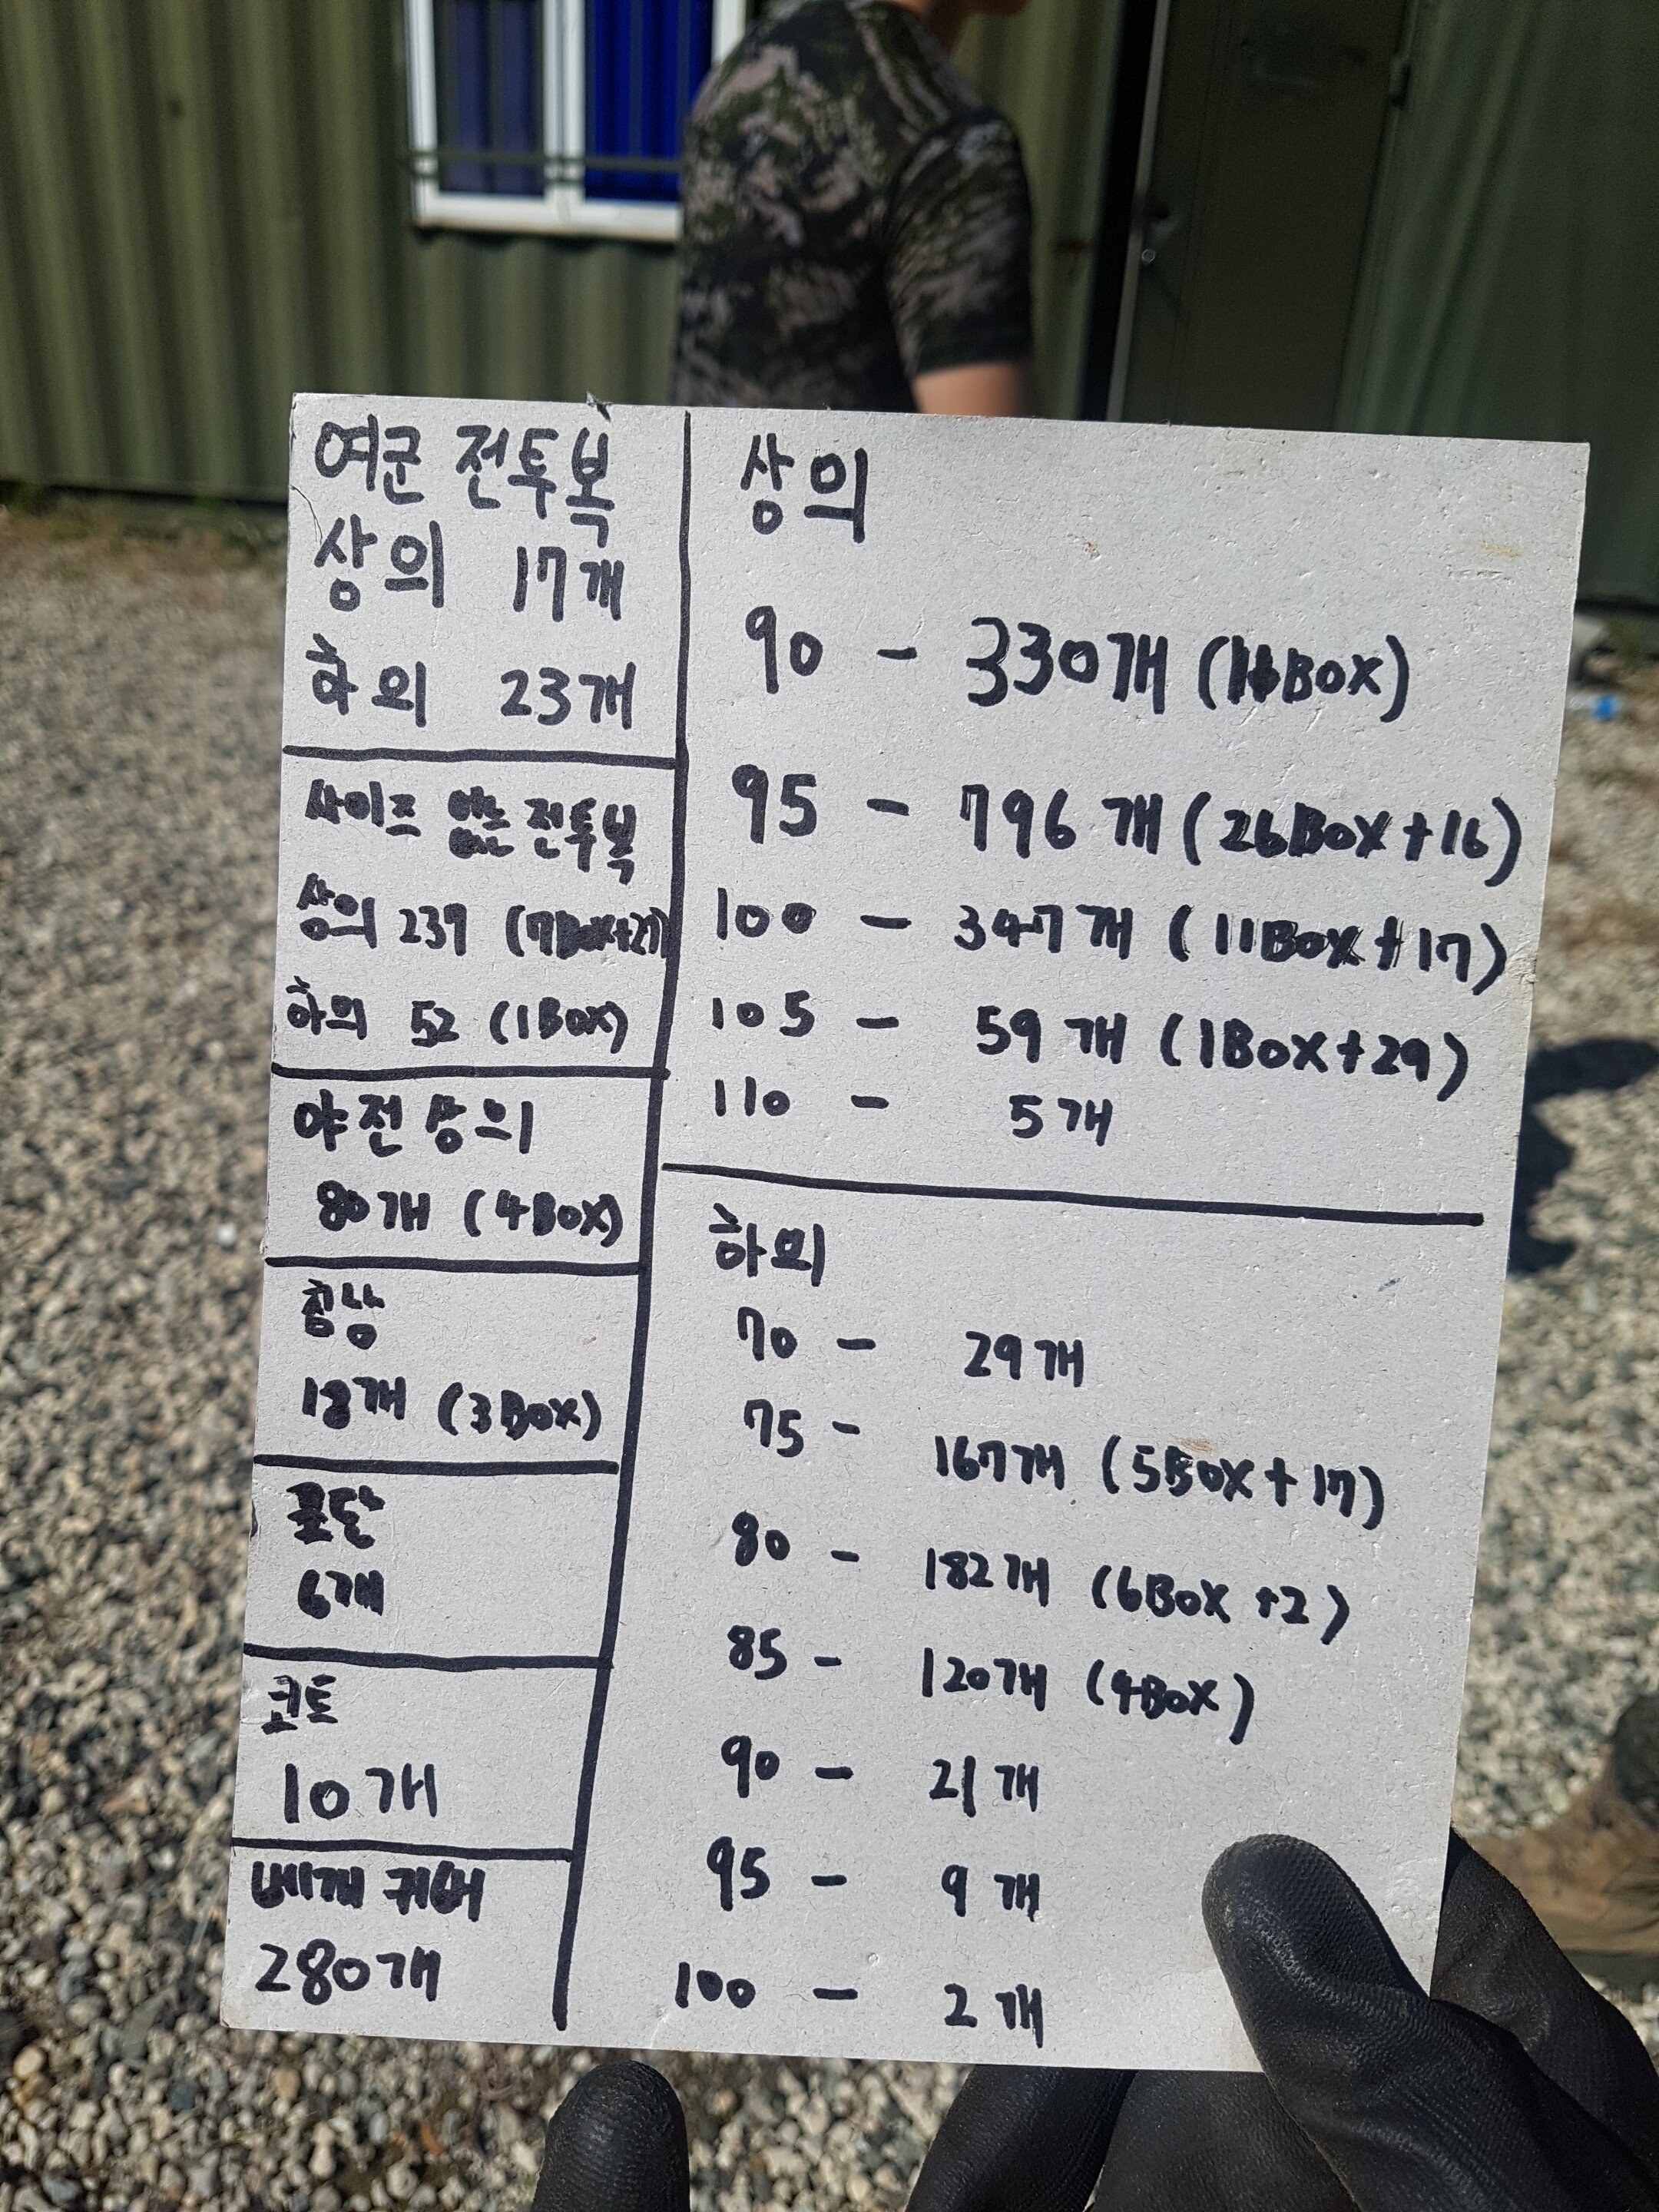 여군 전투복
상의 17개
하의 23개
사이즈 없는 전투복
상의 237 (7Box+27)
하의 52 (1Box)
야전상의
80개 (4Box)
침낭
18개 (3Box)
포단
6개
코트
10개
베개 커버
280개
상의
90 - 330개 (11Box)
95 - 796개 (26Box+16)
100 - 347개 (11Box+17)
105 - 59개 (1Box+29)
110 - 5개
하의
70 - 29개
75 - 167개 (5Box+17)
80 - 182개 (6Box+2)
85 - 120개 (4Box)
90 - 21개
95 - 9개
100 - 2개